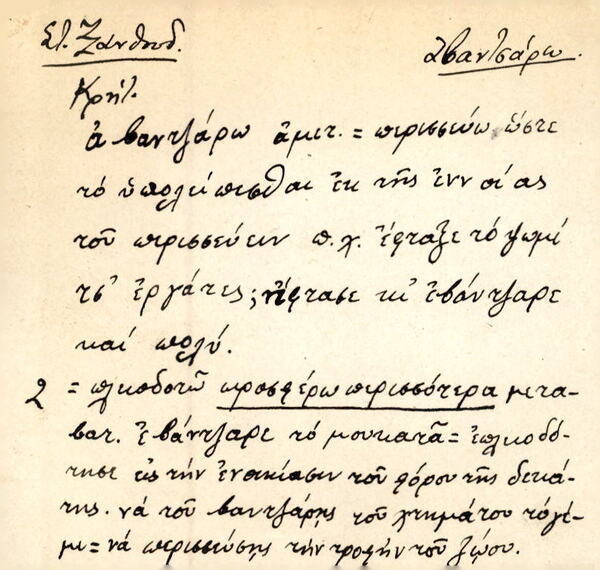 Στ. Ξανθουδ.
ἀβαντσάρω.
Κρήτ.
ἀβαντζάρω ἀμετ. = περισσεύω ὥστε
τὸ ὑπολείπεσθαι ἐκ τῆς ἐννοίας
τοῦ περισσεύειν π.χ. ἔφταξε τὸ ψωμί
τσ' ἐργάτες; ἤφτασε κι' ἐβάντζαρε
καί πολύ.
2 = πλειοδοτῶ προσφέρω περισσότερα μετα-
βατ. ἐβάντζαρε τὸ μουκατᾶ = ἐπλειοδό-
τησε εἰς τὴν ἐνοικίασιν τοῦ φόρου τῆς δεκά-
της. νά τοῦ βαντζάρῃς τοῦ χτημάτου τὸ γέ-
μι = νά περισσεύσῃς τὴν τροφὴν τοῦ ζῴου.